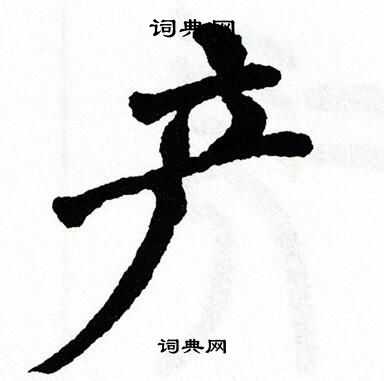 词典网
产
词典网